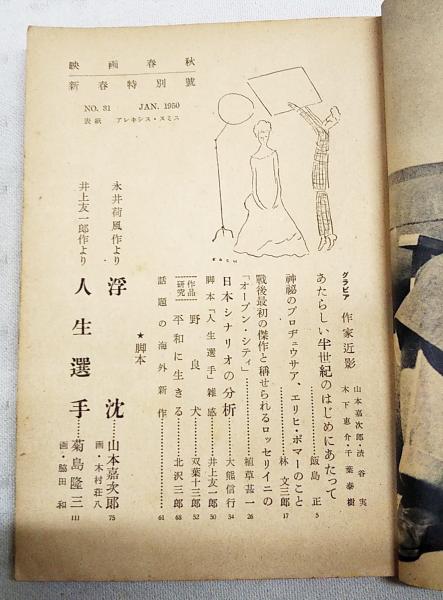 映画春秋
新春特別號
NO. 31 JAN. 1950
表紙 アレキシス・スミス
グラビア 作家近影
山本嘉次郎・渋谷実
木下恵介・千葉泰樹
あたらしい半世紀のはじめにあたって……飯島正 5
神秘のプロヂュウサア、エリヒ・ポマーのこと……林文三郎 17
戦後最初の傑作と稱せられるロッセリイニの
「オープン・シティ」……植草甚一 26
日本シナリオの分析……大熊信行 34
脚本「人生選手」雑感……井上友一郎 50
作品研究
野良犬……双葉十三郎 52
平和に生きる……北沢三郎 68
話題の海外新作…… 61
★脚本
永井荷風作より 浮沈……山本嘉次郎 75
画・木村荘八
井上友一郎作より 人生選手……菊島隆三 111
画・脇田和